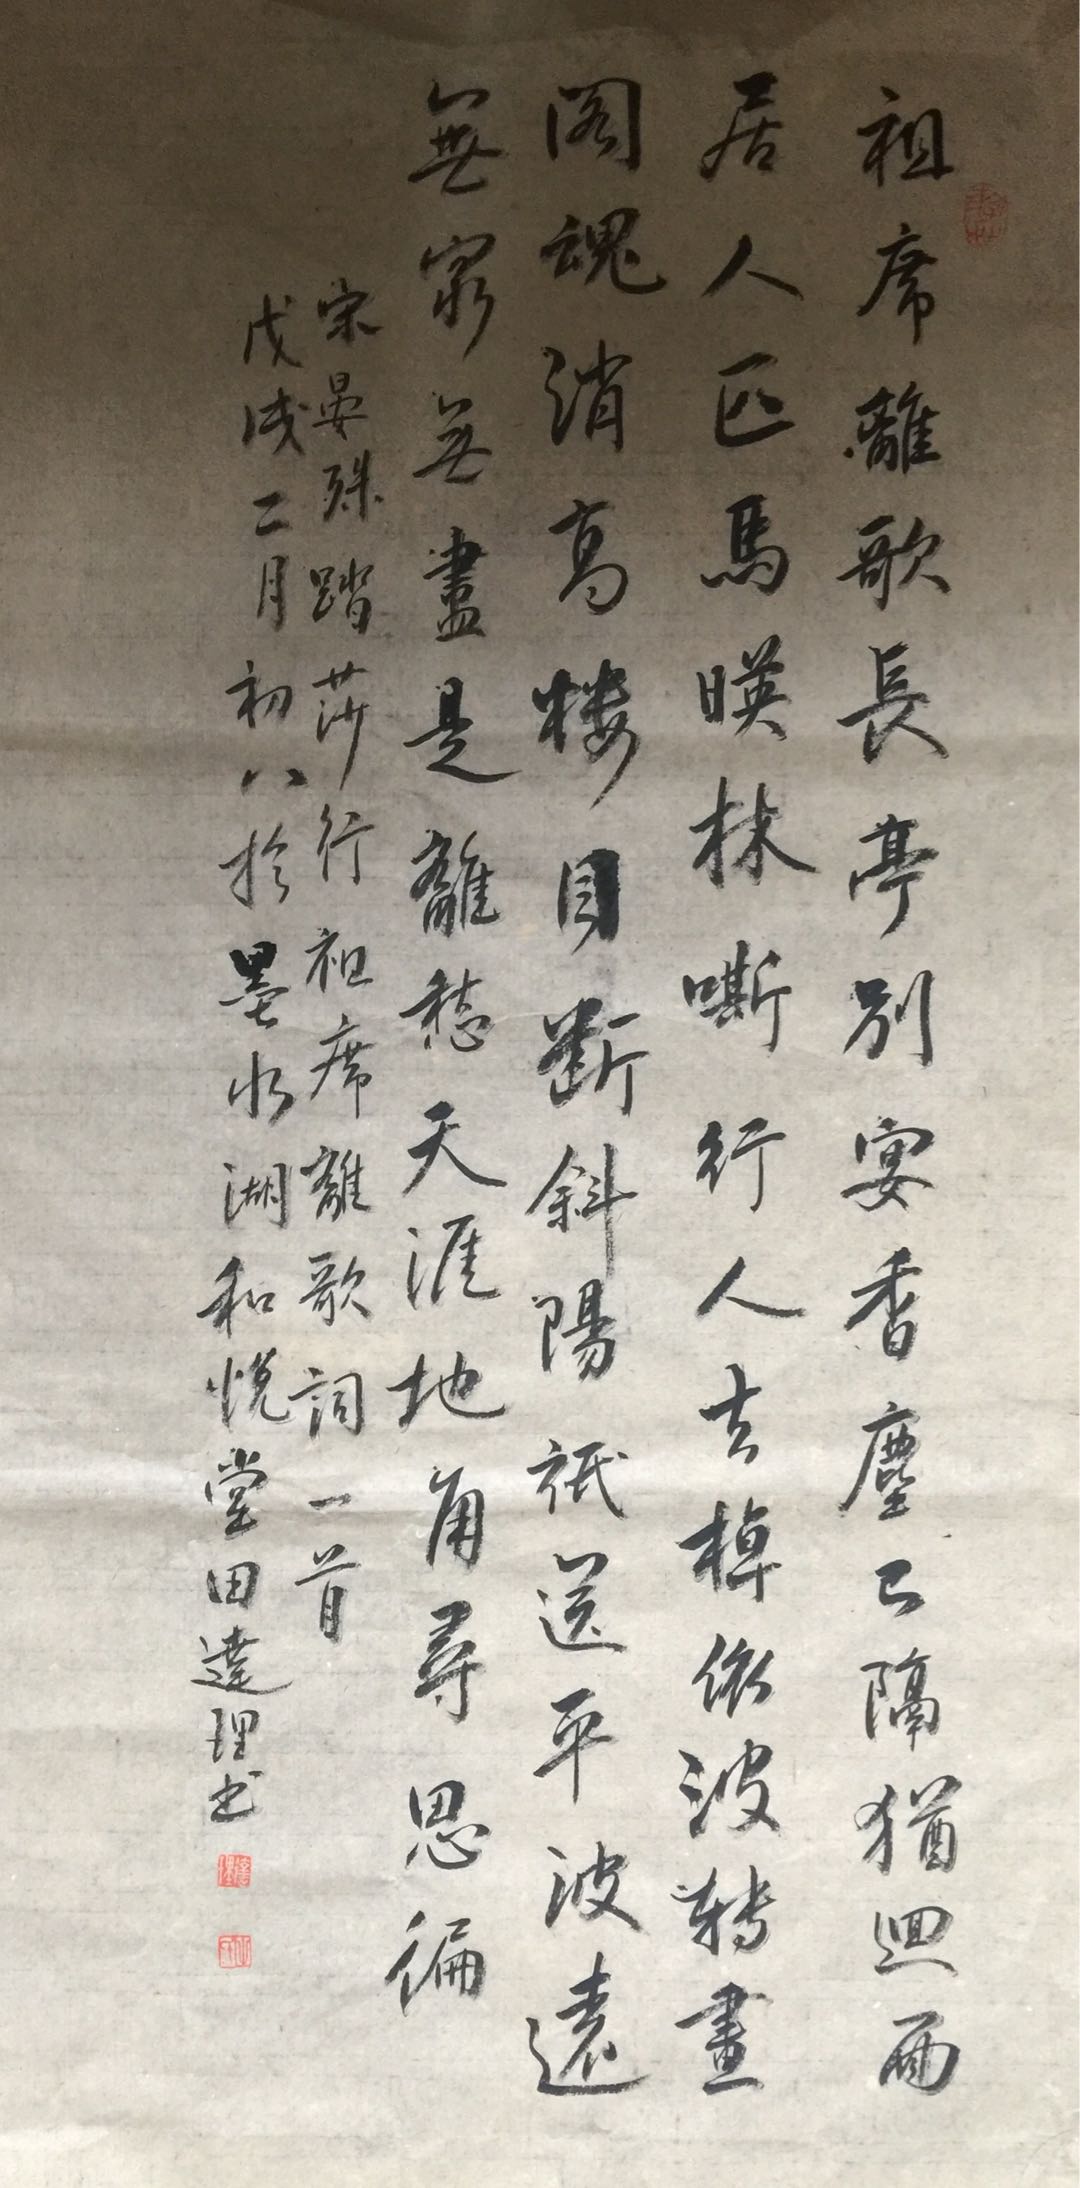 祖席離歌長亭別宴香塵已隔猶迴面
居人匹馬暎林嘶行人去棹依波轉畫
閣魂消高楼目斷斜陽祇送平波遠
無窮無盡是離愁天涯地角尋思徧
宋晏殊踏莎行祖席離歌詞一首
戊戌二月初八於墨水湖和悦堂田達理书